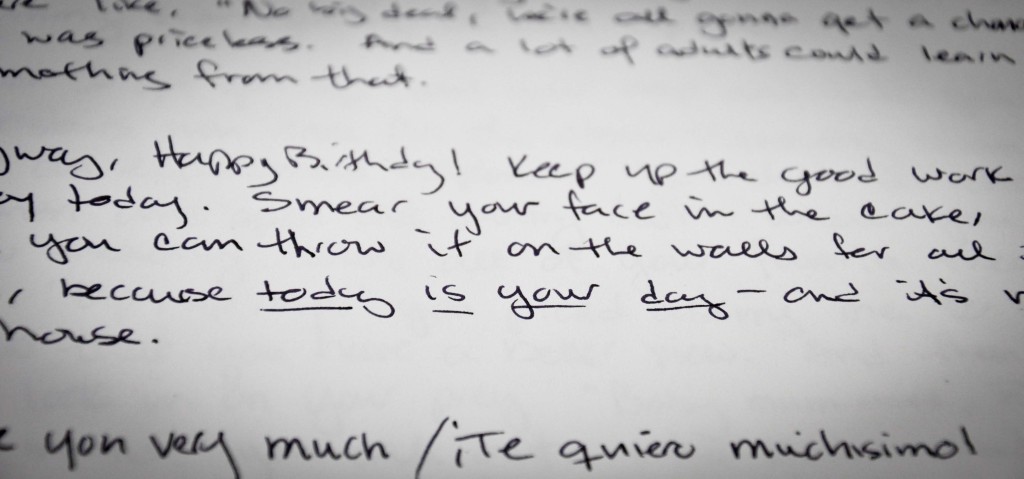 like, "No big deal, we're all gonna get a chan
was priceless. And a lot of adults could learn
mething from that.
yway, Happy Birthday! Keep up the good work
oy today. Smear your face in the cake,
you can throw it on the walls for all
, because today is your day - and it's
house.
you very much / ¡Te quiero muchisimo!